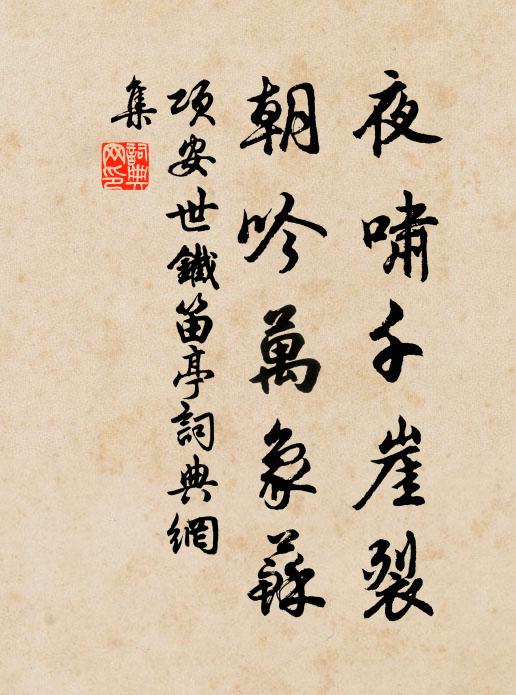 夜嘯千崖裂
朝吟萬象蘇
項安世鐵笛亭詞典網
集
詞典網印